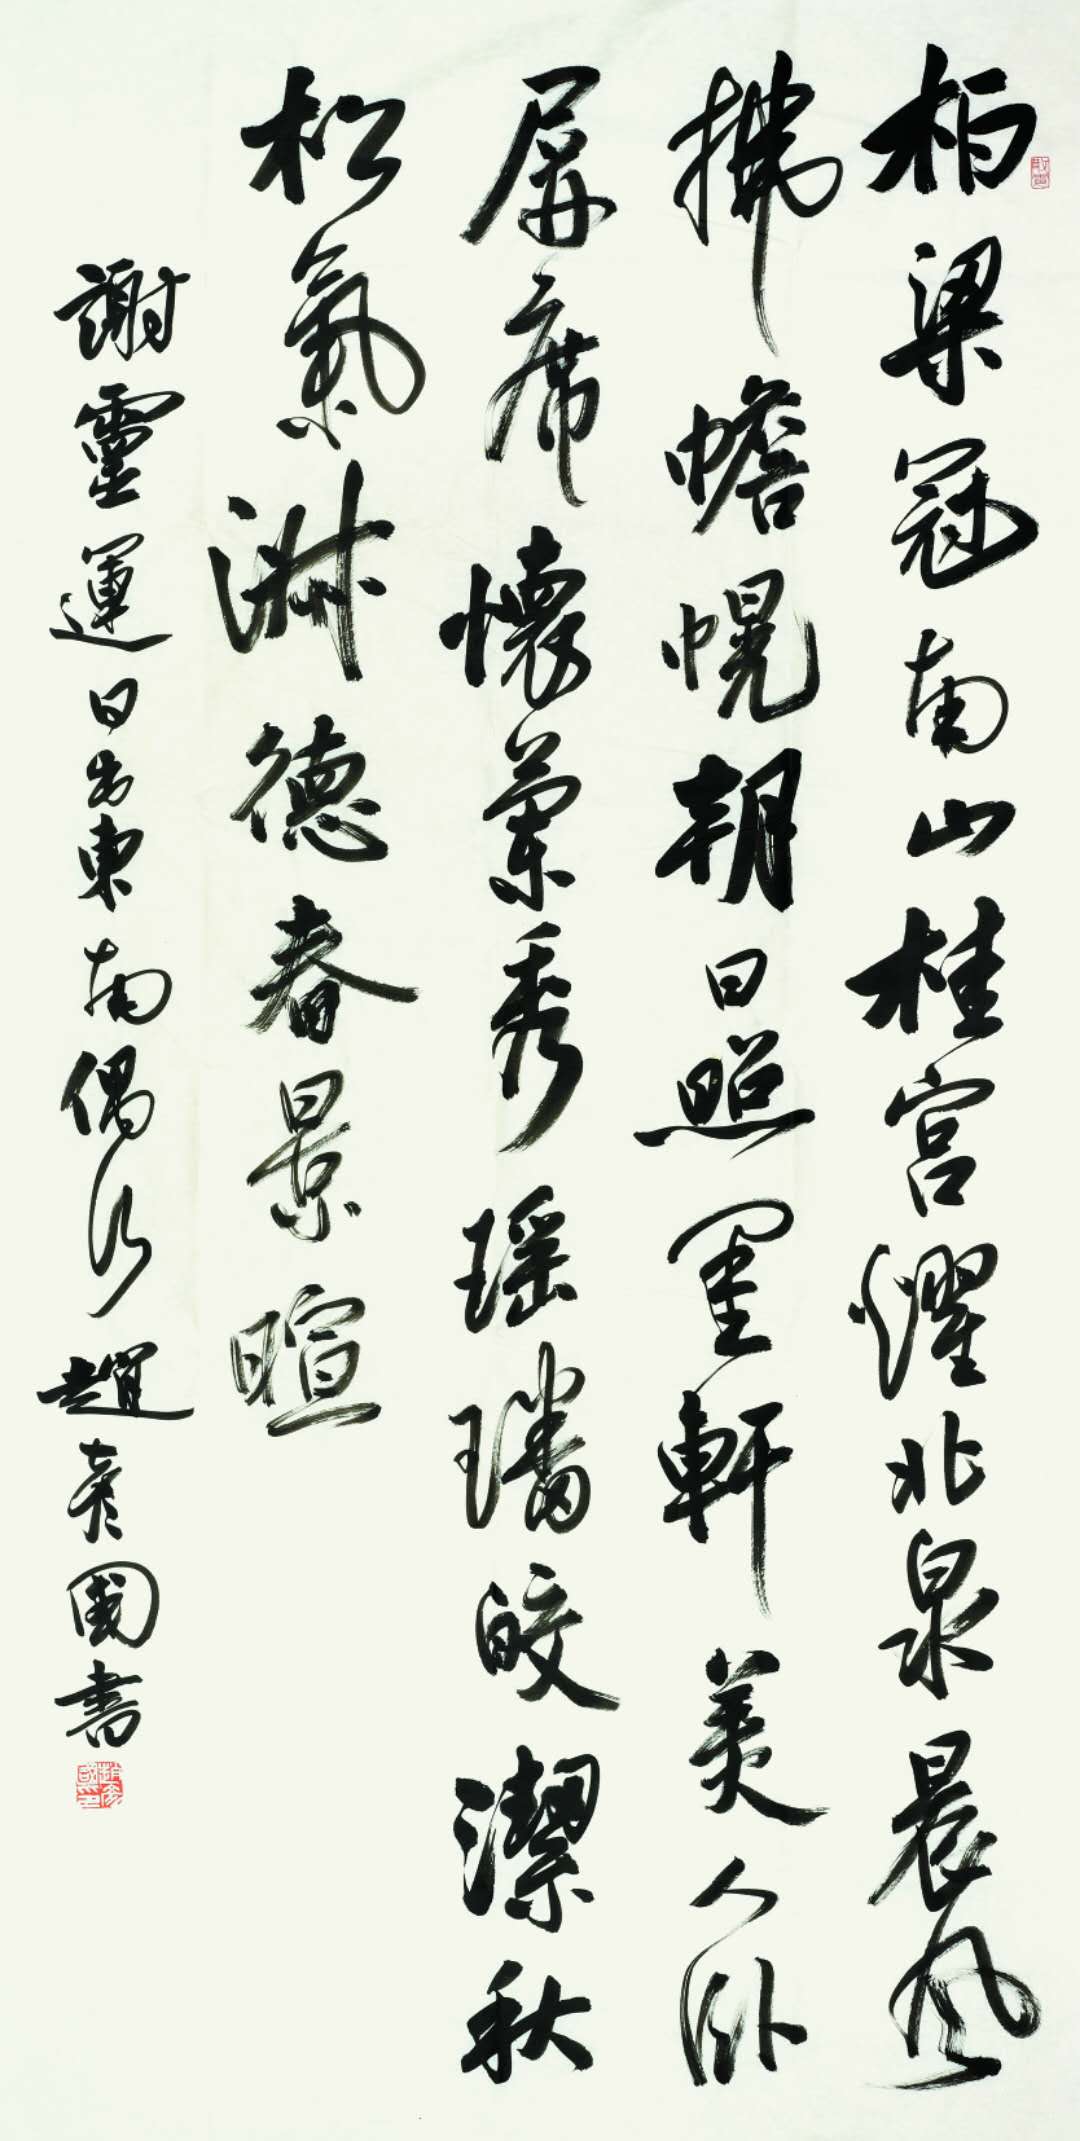 柏梁冠南山桂宮燿北泉晨风
拂幨幌朝日照閨軒美人卧
屏席懷蘭秀瑶璠皎潔秋
松氣淑德春景暄
謝靈運日出東南偶行趙彥國書
趙彥國印